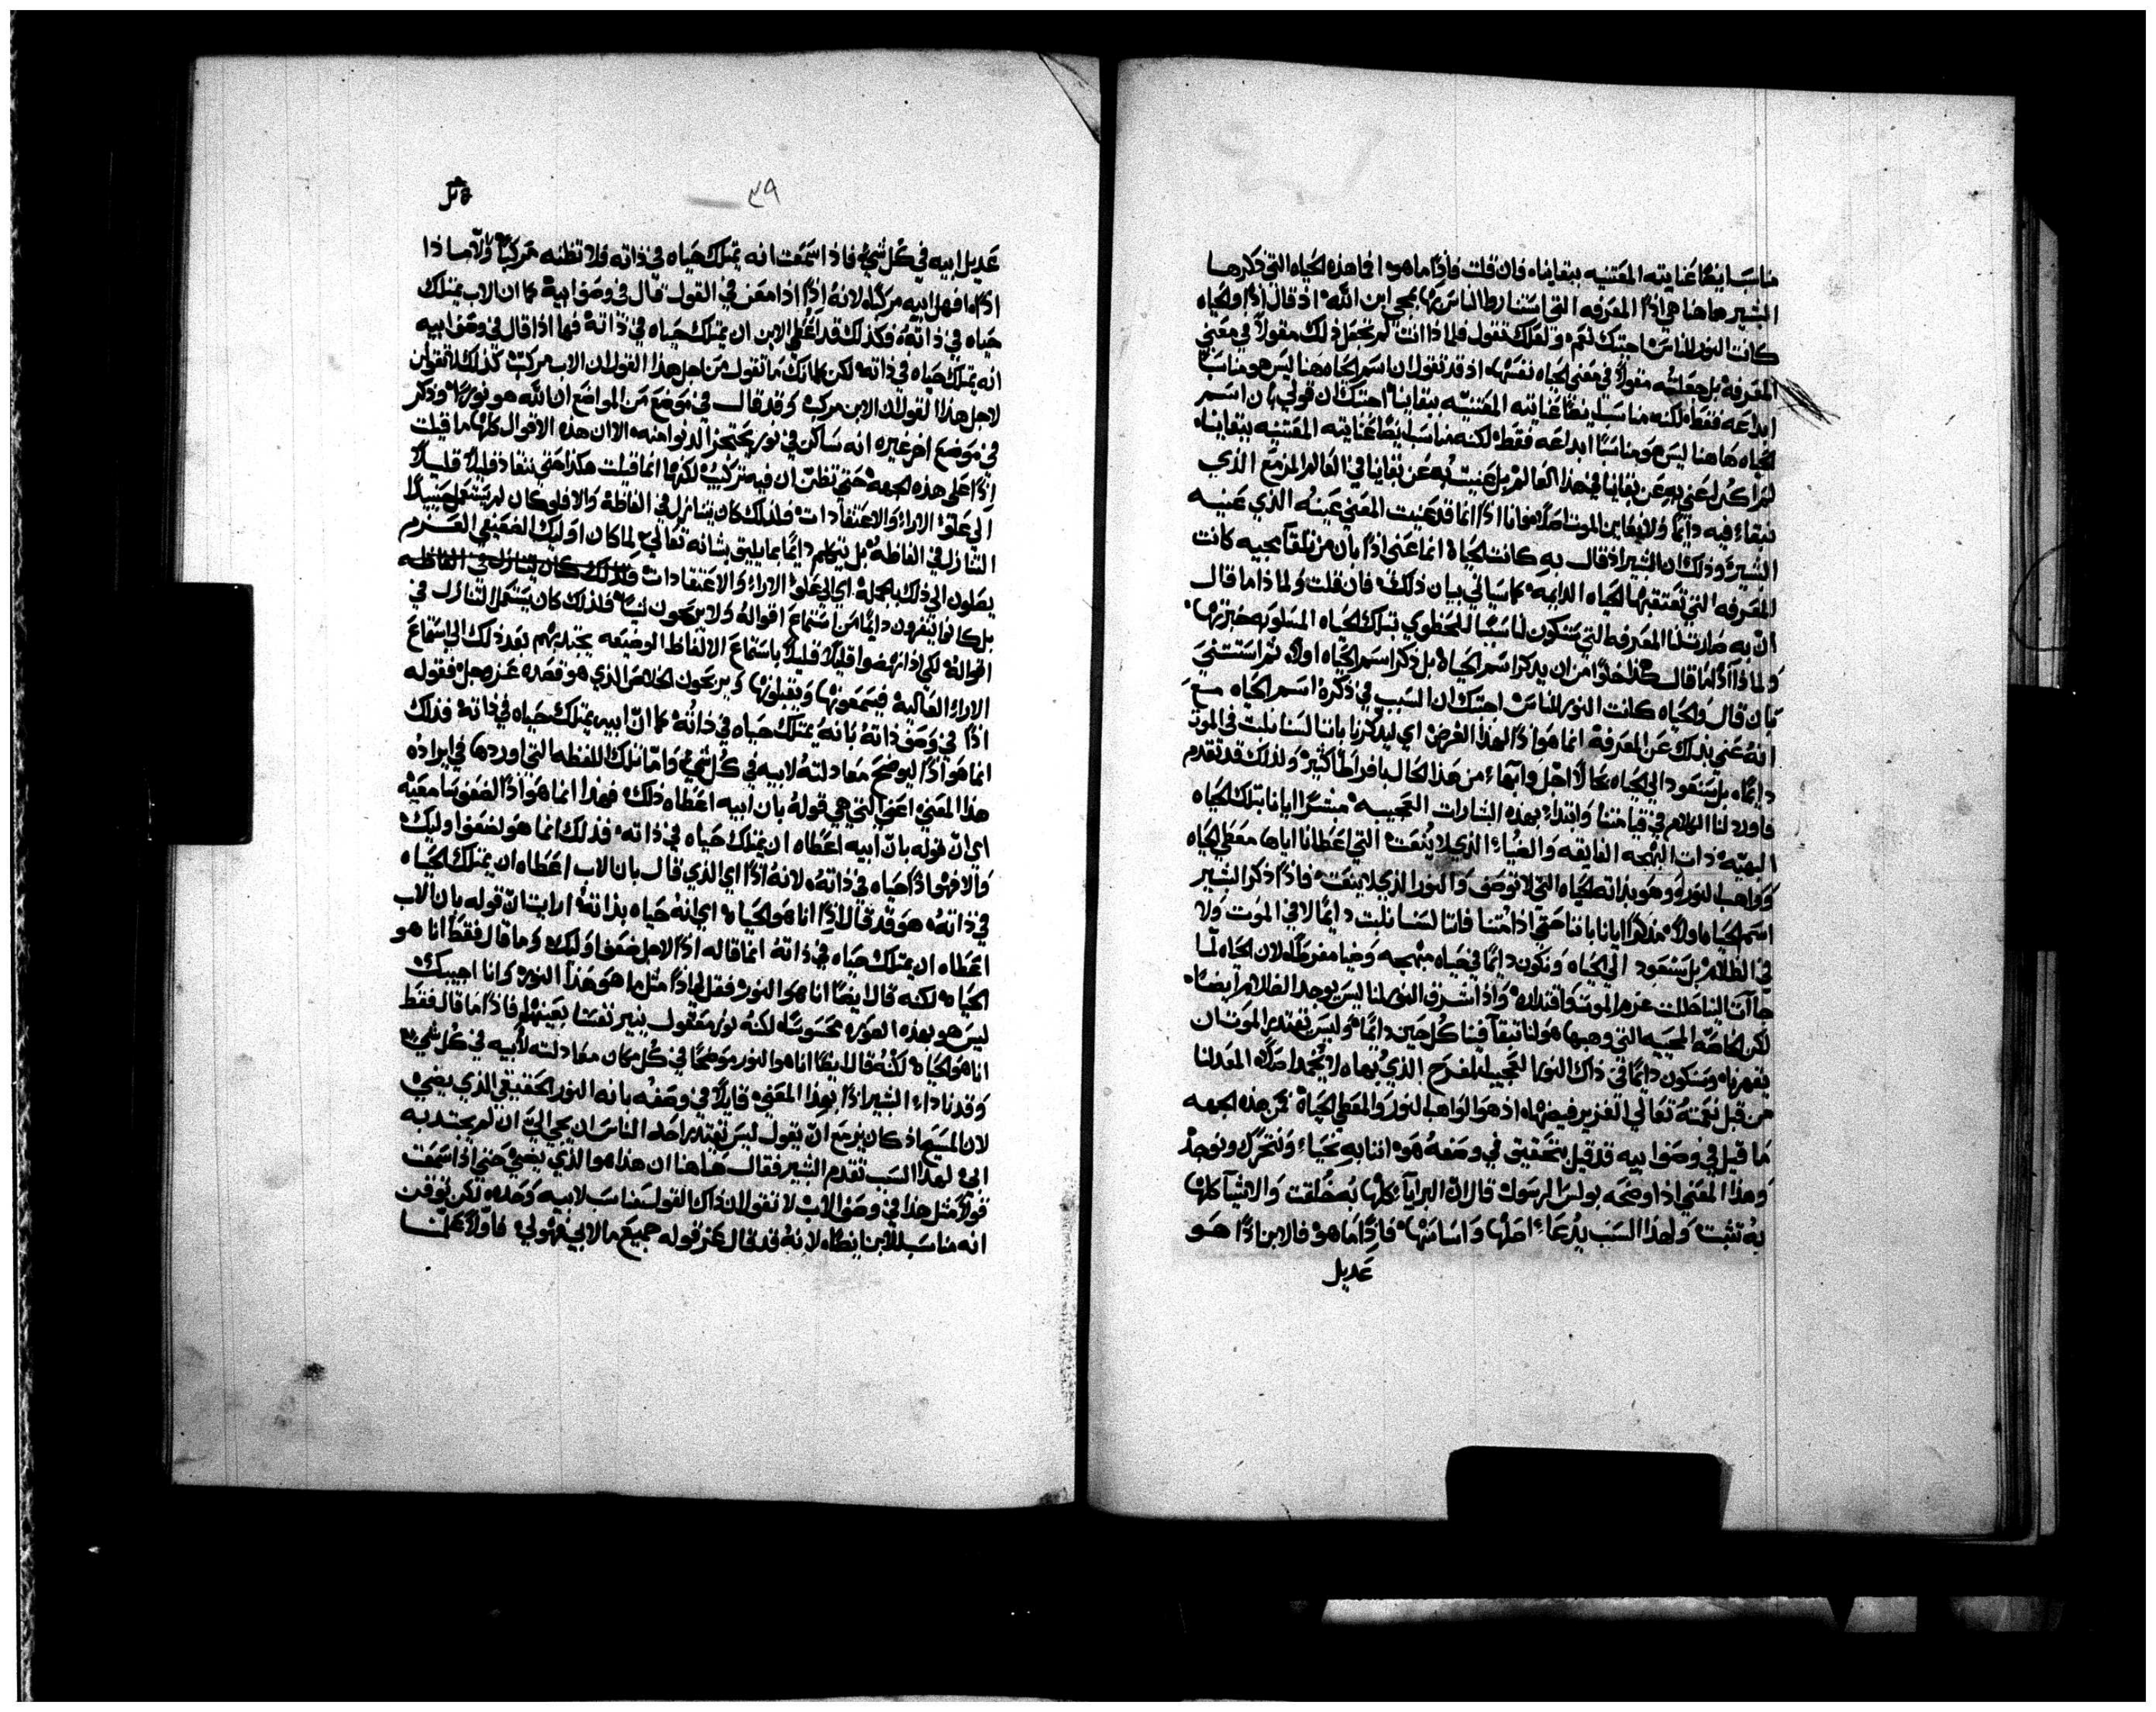 مناسبا نيضًا غنايته المقتنيه ببقاينا، فان قلت فاذًا ما هو افما هذه الحياه التي ذكرها
البشير هاهنا هي اذًا المعرفه التي استنار بها الناس بمجى ابن الله، اذ قال اذًا والحياه
كانت النور للناس اجبتك نعم، ولعلك تقول فلماذا انت لم تجعل ذلك مقولاً في معني
المعرفه بل جعلته مقولاً في معني الحياه نفسها، اذ قد تقول ان اسم الحياه هنا ليس هو مناسبًا
ابداعه فقط، لكنه مناسب ايضًا غنايته المقتنيه ببقاينا، اجبتك ان قولي بان اسم
الحياه هاهنا ليس هو مناسبًا ابداعه فقط، لكنه مناسب ايضًا غنايته المقتنيه ببقاينا،
لم اكن اعني به عن بقاينا في هذا العالم بل عنيت به عن بقاينا في العالم المزمع الذي
نبقاء فيه دايمًا ولا يغايب الموت اصلاً، فانا اذًا انما قد عنيت المعني عينه الذي عنيه
البشير، وذلك ان البشير اذ قال به كانت الحياة انما عني اذًا بان من تلقا مجيه كانت
المعرفه التي تعتقبها الحياه الدايمه، كما سياتي بيان ذلك، فان قلت ولماذا ما قال
ان به صارت لنا المعرفه التي ستكون لنا سببًا للحظوي بتلك الحياه المتلوبه خبرتها،
ولماذا اذًا ما قال هكذا خلوًا من ان يذكر اسم الحياة، بل ذكر اسم الحياه اولاً، ثم استتني
بان قال والحياه كانت النور للناس، اجبتك ان السبب في ذكره اسم الحياه مع
انه عني بذلك عن المعرفة انما هو اذًا لهذا الغرض اي ليذكرنا باننا لسنا نلبت في الموت
دايمًا، بل سنعود الي الحياه بحال اجل وابهاء من هذا الحال بافراط كثير، ولذلك قد تقدم
فاورد لنا الكلام في قيامتنا وابتداء بهذه البشارات العجيبه، مبشرًا ايانا بتلك الحياه
البهيّه، ذات البهجه الفايقه والضياء الذي لا يُنعت، التي اعطانا اياها معطي الحياه
وواهب النور، وهو بذاته الحياه التي لا توصف والنور الذي لا ينعت، فاذًا ذكر البشير
اسم الحياه اولاً، مذكرًا ايانا باننا حتي اذا متنا فانا لسنا نلبت دايمًا لا في الموت ولا
في الظلام، بل سنعود الي الحياه ونكون دايمًا في حياه مبهجه وضيا مفرط، لان الحياه لما
جاات الينا حللت عزم الموت واقتداره، واذ اشرق النور لنا ليس يوجد الظلام ايضًا،
لكن الخاصه المحييه التي وهبها هو لنا تبقا فينا كل حين دايمًا، وليس يقتدر الموت ان
يقهرنا، وسنكون دايمًا في ذاك النور العجيب المفرح الذي بهاه لا يُخمد اصلاً، المعد لنا
من قبل نعمته تعالي الغزير فيضها، اذ هو الواهب النور والمعطي الحياة، فمن هذه الجهه
ما قيل في وصف ابيه قد قيل بتحقيق في وصفه هو، اننا به نحياء ونتحرك ونوجد
وهذا المعني اذ اوضحه بولس الرسول قال ان البرايا كلها به خلقت والاشيا كلها
به تثبت، ولهذا السبب يُدعاء اصلها واساسها، فاذًا ما هو، فالابن اذًا هو
عديل
٣٩
عديل ابيه في كل شي، فاذا سمعت انه يمتلك حياه في ذاته فلا تظنه مركبًا، والا ماذا
اذًا، افهل ابيه مركبًا، لانه اذًا اذ امعن في القول قال في وصف ابيه كما ان الاب يمتلك
حياه في ذاته، فكذلك قد اعطي الابن ان يمتلك حياه في ذاتة، فها اذا قال في وصف ابيه
انه يمتلك حياه في ذاته، لكن كما انك ما تقول من اجل هذا القول ان الاب مركب، كذلك لا تقولن
لاجل هذا القول ان الابن مركب، وقد قال في موضع من المواضع ان الله هو نور، وذكر
في موضع اخر غيره انه ساكن في نور يحتجز الدنو منه، الا ان هذه الاقوال كلها ما قيلت
اذًا على هذه الجهه حتي تظن ان فيه تركيبٌ لكنها انما قيلت هكذا حتي ننقاد قليلاً قليلاً
الي علو الاراء والاعتقادات، ولذلك كان يتنازل في الفاظة، والا فلو كان لم يستعمل حينيذٍ
التنازل في الفاظه، بل تيكلم دايمًا بما يليق بشانه تعالي، لما كان اوليك الضعيفي العزم
يصلون الي ذلك بالجملة، اي الي علو الاراء والاعتقادات فلذلك كان يتنازل في الفاظه
بل كانوا ينفرون دايمًا من استماع اقواله، ولا يربحون شيًا، فلذلك كان يستعمل التنازل في
اقواله، لكي اذ انهضوا قليلاً قليلاً باستماع الالفاظ الوضيعه يجتذبهم بعد ذلك الي استماع
الاراء العالية، فيسمعونها ويقبلونها ويربحون الخلاص الذي هو قصده عز وجل، فقوله
اذًا في وصف ذاتة بانهُ يمتلك حياه في ذاتة، كما ان ابيه يمتلك حياه في ذاتة، فذلك
انما هو اذًا ليوضح معادلتة لابيه في كل شي، واما تلك اللفظه التي اوردها في ايراده
هذا المعني، اعني التي هي قوله بان ابيه اعطاه ذلك، فهذا انما هو اذًا لضعف سامعيه
اي ان قوله بان ابيه اعطاه ان يمتلك حياه في ذاته، فذلك انما هو لضعف اوليك
والا فهو اذًا حياه في ذاتة، لانه اذًا اي الذي قال بان الاب اعطاه ان يمتلك الحياه
في ذاتة، هو قد قال اذًا انا هو الحياة، اي انه حياه بذاتة، ارايت ان قوله بان الاب
اعطاه ان يمتلك حياه في ذاتة انما قاله اذًا لاجل ضعف اوليك، وما قال فقط انا هو
الحياة، لكنه قال ايضًا انا هو النور، فقل لي اذًا مثل ما هو هذا النور، وانا اجيبك
ليس هو بهذه الصوره محسوسًا، لكنه نور معقول ينير نفسنا بعينها، فاذًا ما قال فقط
انا هو الحياة، لكنه قال ايضًا انا هو النور، موضحًا في كل مكان معادلته لابيه في كل شي،
وقد نادا، البشير اذًا بهذا المعني، قايلاً في وصفه بانه النور الحقيقي الذي يضي،
لان المسيح اذ كان يزمع ان يقول ليس يقتدر احد الناس ان يجي الي ان لم يجتذبه
ابي، لهذا السبب تقدم البشير فقال هاهنا ان هذا هو الذي يضي، حتي اذا سمعت
قولاً مثل هذا في وصف الاب، لا تقول ان ذاك القول مناسب لابيه وحده، لكن توقن
انه مناسب للابن ايضًا، لانه قد قال عز قوله جميع ما لابي فهو لي، فاولاً علمنا